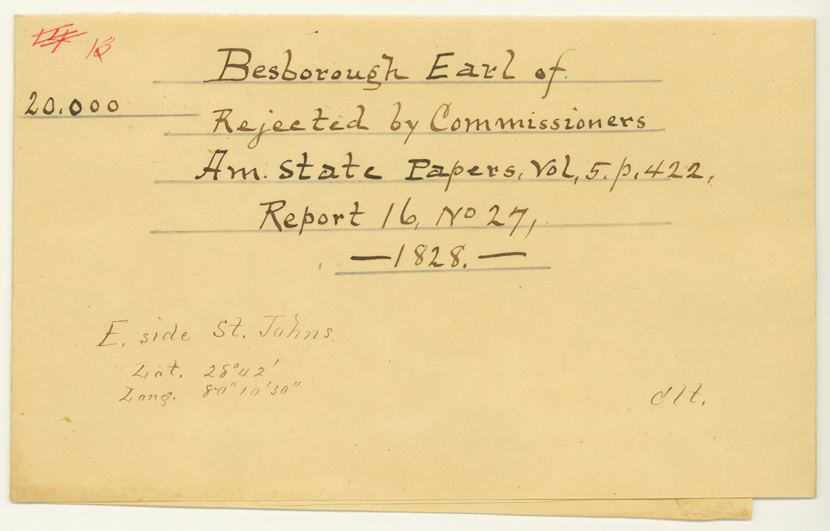 13
Besborough Earl of.
20.000
Rejected by Commissioners
Am. State Papers, Vol, 5. p. 422,
Report 16, No 27,
—1828.—
E. side St. Johns
Lat. 28° 42'
Long. 80° 10' 30"